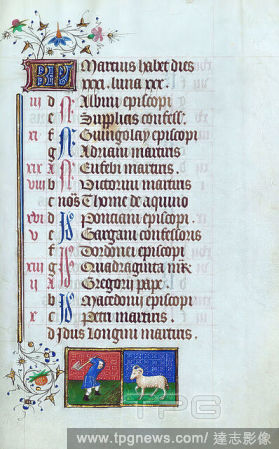 KL Martius habet dies
xxxi. luna xxx.
iii d N Albini episcopi
e N Suplicii confess.
xi f N Guingolay episcopi
g N Adriani martiris
xix A N Eusebi martiris.
viii b N Victorini martiris
c nōs Thome de aquino
xvi d Id Ponciani episcopi.
v e Id Gorgoni confessoris
f Id episcopi
xiii g Id Quadraginta mīk
ii A Id Gregorii pape.
b Id Macedonii episcopi
x c Id Petri martiris.
d Jdus Longini martiris.
TPG
www.tpgnews.com/ 達志影像